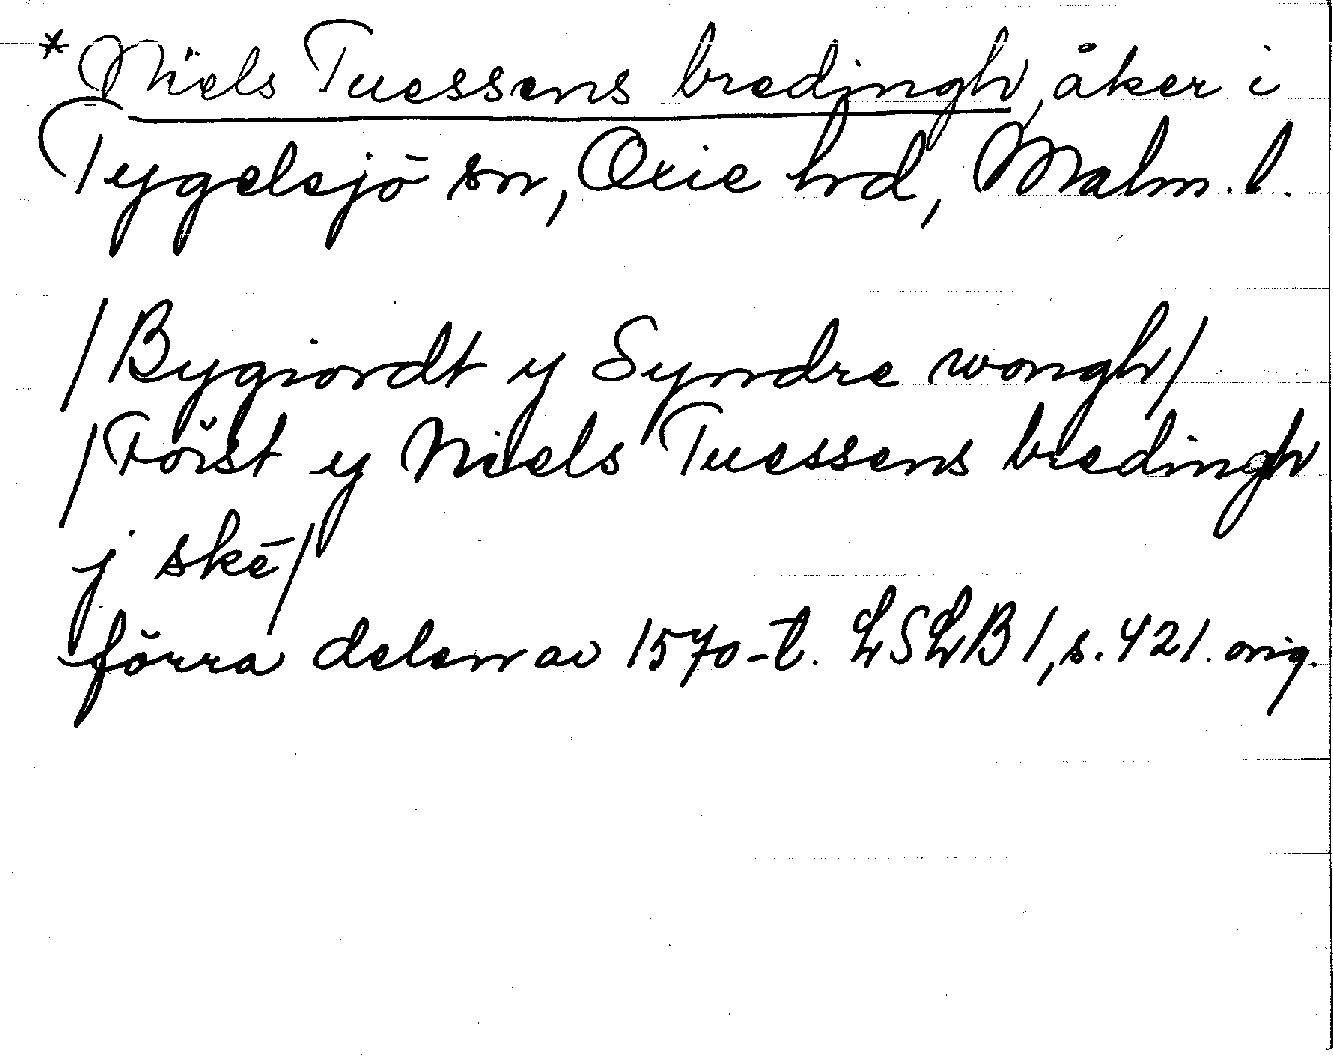 *Niels Tuessens bredingh, åker i
Tygelsjö sn, Oxie hd, Malm. l.
/Bygiordt y Syndre wongh/
/Först y Niels Tuessens bredingh
j skē/
förra delen av 1570-t. LSLB 1, s. 421. orig.